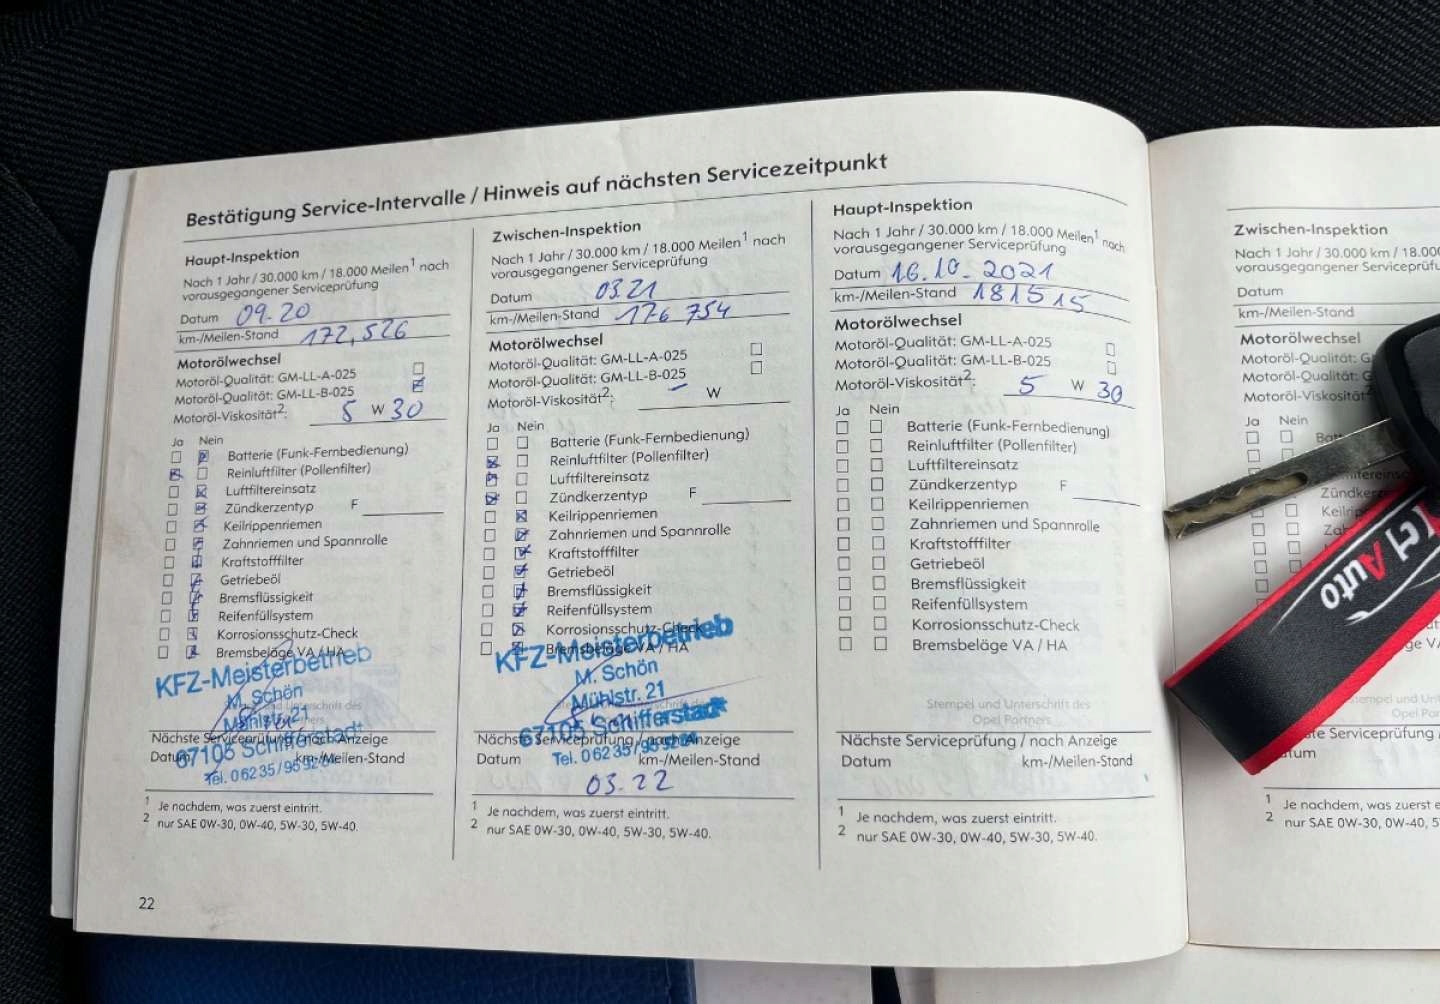 Bestätigung Service-Intervalle / Hinweis auf nächsten Servicezeitpunkt
Haupt-Inspektion
Nach 1 Jahr / 30.000 km / 18.000 Meilen1 nach
vorausgegangener Serviceprüfung
Datum 09.20
km-/Meilen-Stand 172,526
Motorölwechsel
Motoröl-Qualität: GM-LL-A-025
Motoröl-Qualität: GM-LL-B-025
Motoröl-Viskosität2: 5 W 30
Ja Nein
Batterie (Funk-Fernbedienung)
Reinluftfilter (Pollenfilter)
Luftfiltereinsatz
Zündkerzentyp F
Keilrippenriemen
Zahnriemen und Spannrolle
Kraftstofffilter
Getriebeöl
Bremsflüssigkeit
Reifenfüllsystem
Korrosionsschutz-Check
Bremsbeläge VA / HA
KFZ-Meisterbetrieb
M. Schön
Mühlstr. 21
67105 Schifferstadt
Tel. 0 62 35 / 95
Nächste Serviceprüfung / nach Anzeige
Datum km-/Meilen-Stand
1 Je nachdem, was zuerst eintritt.
2 nur SAE 0W-30, 0W-40, 5W-30, 5W-40.
22
Zwischen-Inspektion
Nach 1 Jahr / 30.000 km / 18.000 Meilen1 nach
vorausgegangener Serviceprüfung
Datum 03.21
km-/Meilen-Stand 176 754
Motorölwechsel
Motoröl-Qualität: GM-LL-A-025
Motoröl-Qualität: GM-LL-B-025
Motoröl-Viskosität2: W
Ja Nein
Batterie (Funk-Fernbedienung)
Reinluftfilter (Pollenfilter)
Luftfiltereinsatz
Zündkerzentyp F
Keilrippenriemen
Zahnriemen und Spannrolle
Kraftstofffilter
Getriebeöl
Bremsflüssigkeit
Reifenfüllsystem
Korrosionsschutz-Check
Bremsbeläge VA / HA
KFZ-Meisterbetrieb
M. Schön
Mühlstr. 21
67105 Schifferstadt
Tel. 0 62 35 / 95
Nächste Serviceprüfung / nach Anzeige
Datum km-/Meilen-Stand
03.22
1 Je nachdem, was zuerst eintritt.
2 nur SAE 0W-30, 0W-40, 5W-30, 5W-40.
Haupt-Inspektion
Nach 1 Jahr / 30.000 km / 18.000 Meilen1 nach
vorausgegangener Serviceprüfung
Datum 16.10.2021
km-/Meilen-Stand 181515
Motorölwechsel
Motoröl-Qualität: GM-LL-A-025
Motoröl-Qualität: GM-LL-B-025
Motoröl-Viskosität2: 5 W 30
Ja Nein
Batterie (Funk-Fernbedienung)
Reinluftfilter (Pollenfilter)
Luftfiltereinsatz
Zündkerzentyp F
Keilrippenriemen
Zahnriemen und Spannrolle
Kraftstofffilter
Getriebeöl
Bremsflüssigkeit
Reifenfüllsystem
Korrosionsschutz-Check
Bremsbeläge VA / HA
Stempel und Unterschrift des
Opel Partners
Nächste Serviceprüfung / nach Anzeige
Datum km-/Meilen-Stand
1 Je nachdem, was zuerst eintritt.
2 nur SAE 0W-30, 0W-40, 5W-30, 5W-40.
Zwischen-Inspektion
Nach 1 Jahr / 30.000 km / 18.000
vorausgegangener
Datum
km-/Meilen-Stand
Motorölwechsel
Motoröl-Qualität:
Motoröl-Qualität:
Motoröl-Viskosität
Ja Nein
Auto
Stempel und
Opel
1 Je nachdem, was zuerst
2 nur SAE 0W-30, 0W-40,